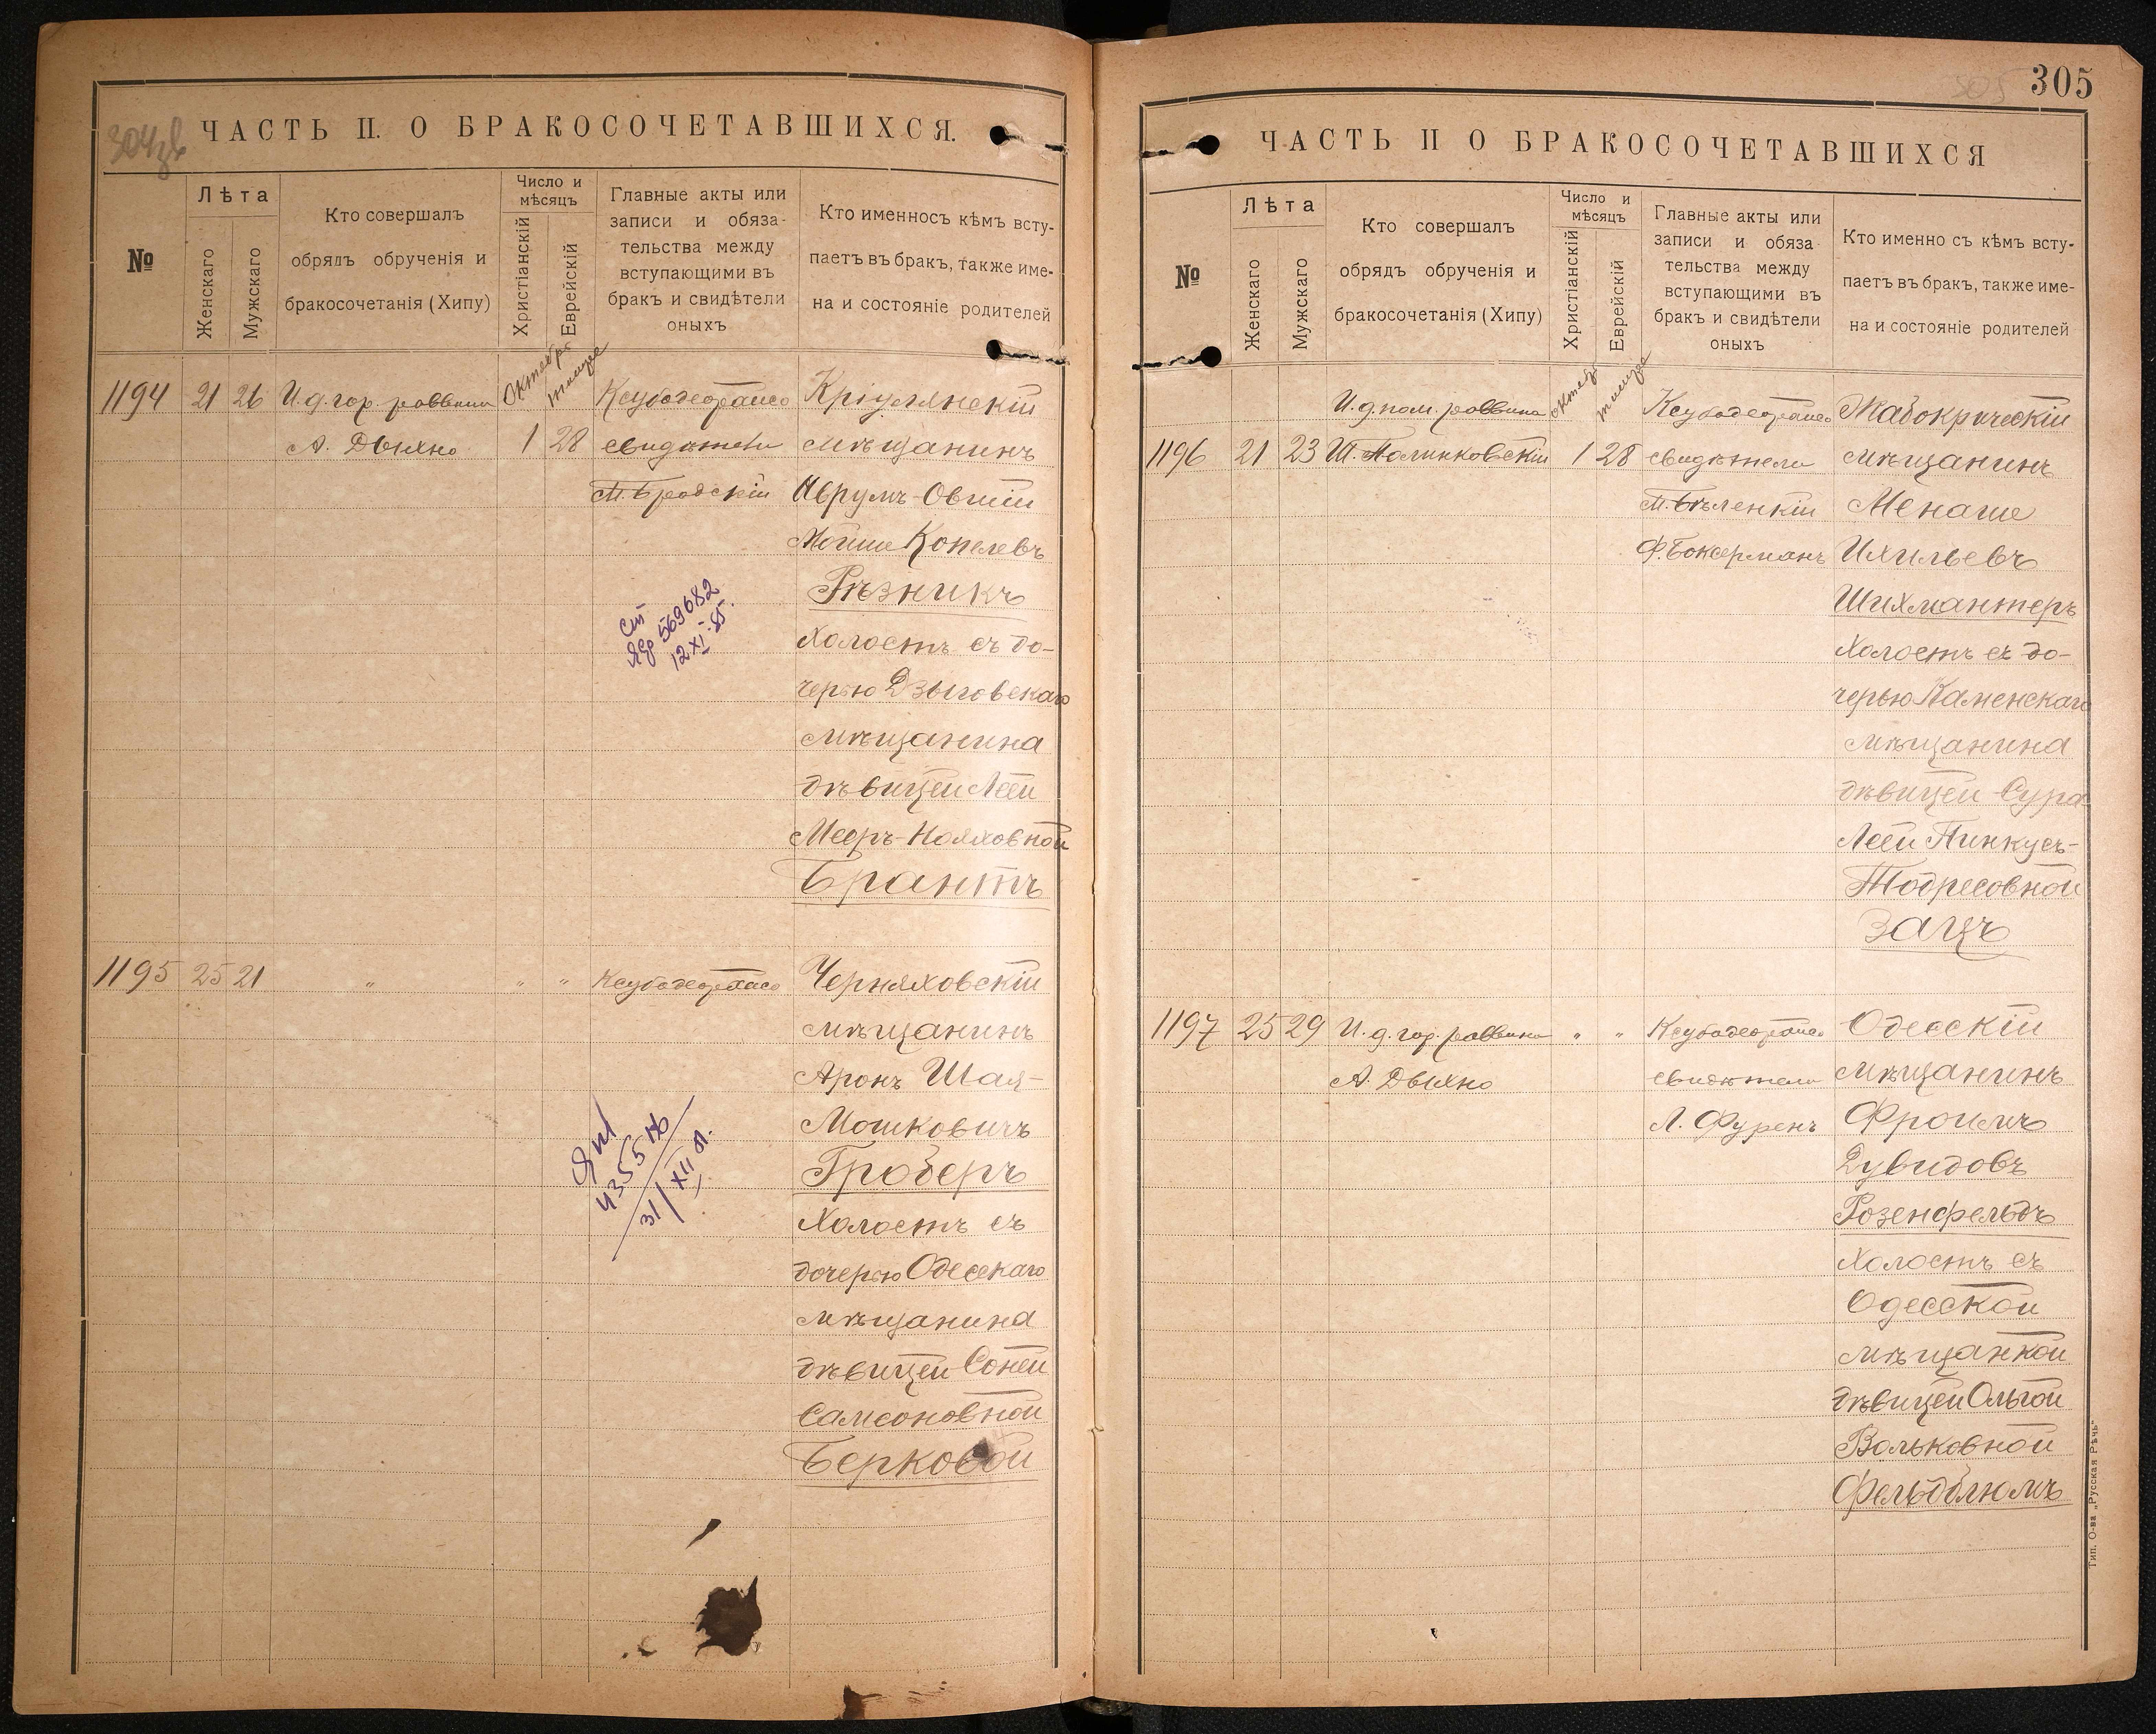 304 зв
ЧАСТЬ II. О БРАКОСОЧЕТАВШИХСЯ.
№
Лѣта
Женскаго
Мужскаго
Кто совершалъ
обрядъ обрученія и
бракосочетанія (Хипу)
Число и
мѣсяцъ
Христіанскій
Еврейскій
Главные акты или
записи и обяза-
тельства между
вступающими въ
бракъ и свидѣтели
оныхъ
Кто именносъ кѣмъ всту-
паетъ въ бракъ, также име-
на и состояніе родителей
1194 21 26 И. д. гор. раввина
А. Дыхно
Октябрь
тишре
1 28
Ксубодеорайсо
свидѣтели
М. Бродскій
Кріулянскій
мѣщанинъ
Аврумъ-Овшій
Мойше Копелевъ
Рѣзникъ
холостъ съ до-
черью Дзыговскаго
мѣщанина
дѣвицей Леей
Мееръ-Нояховной
Брантъ
569682
12 XI-85.
1195 25 21 " " " Ксубодеорайсо
Черняховскій
мѣщанинъ
Аронъ Шая-
Мошковичъ
Гроберъ
холостъ съ
дочерью Одесскаго
мѣщанина
дѣвицей Соней
Самсоновной
Берковой
435576
31/XII 81.
305
305
ЧАСТЬ II О БРАКОСОЧЕТАВШИХСЯ
№
Лѣта
Женскаго
Мужскаго
Кто совершалъ
обрядъ обрученія и
бракосочетанія (Хипу)
Число и
мѣсяцъ
Христіанскій
Еврейскій
Главные акты или
записи и обяза-
тельства между
вступающими въ
бракъ и свидѣтели
оныхъ
Кто именно съ кѣмъ всту-
паетъ въ бракъ, также име-
на и состояніе родителей
1196 21 23 И. д. пом. раввина
Ш. Полинковскій
октябр
тишре
1 28
Ксубодеорайсо
свидѣтели
М. Бѣленкій
Ф. Боксерманъ
Жабокричскій
мѣщанинъ
Менаше
Ихильевъ
Шихмантеръ
холостъ съ до-
черью Каменскаго
мѣщанина
дѣвицей Сура-
Леей Пинкусъ-
Тодресовной
Зацъ
1197 25 29 И. д. гор. раввина
А. Дыхно
" "
Ксубодеорайсо
свидѣтели
Л. Фуренъ
Одесскій
мѣщанинъ
Фроимъ
Дувидовъ
Розенфельдъ
холостъ съ
Одесской
мѣщанкой
дѣвицей Ольгой
Вольковной
Фельдблюмъ
Тип. О-ва „Русская Рѣчь“